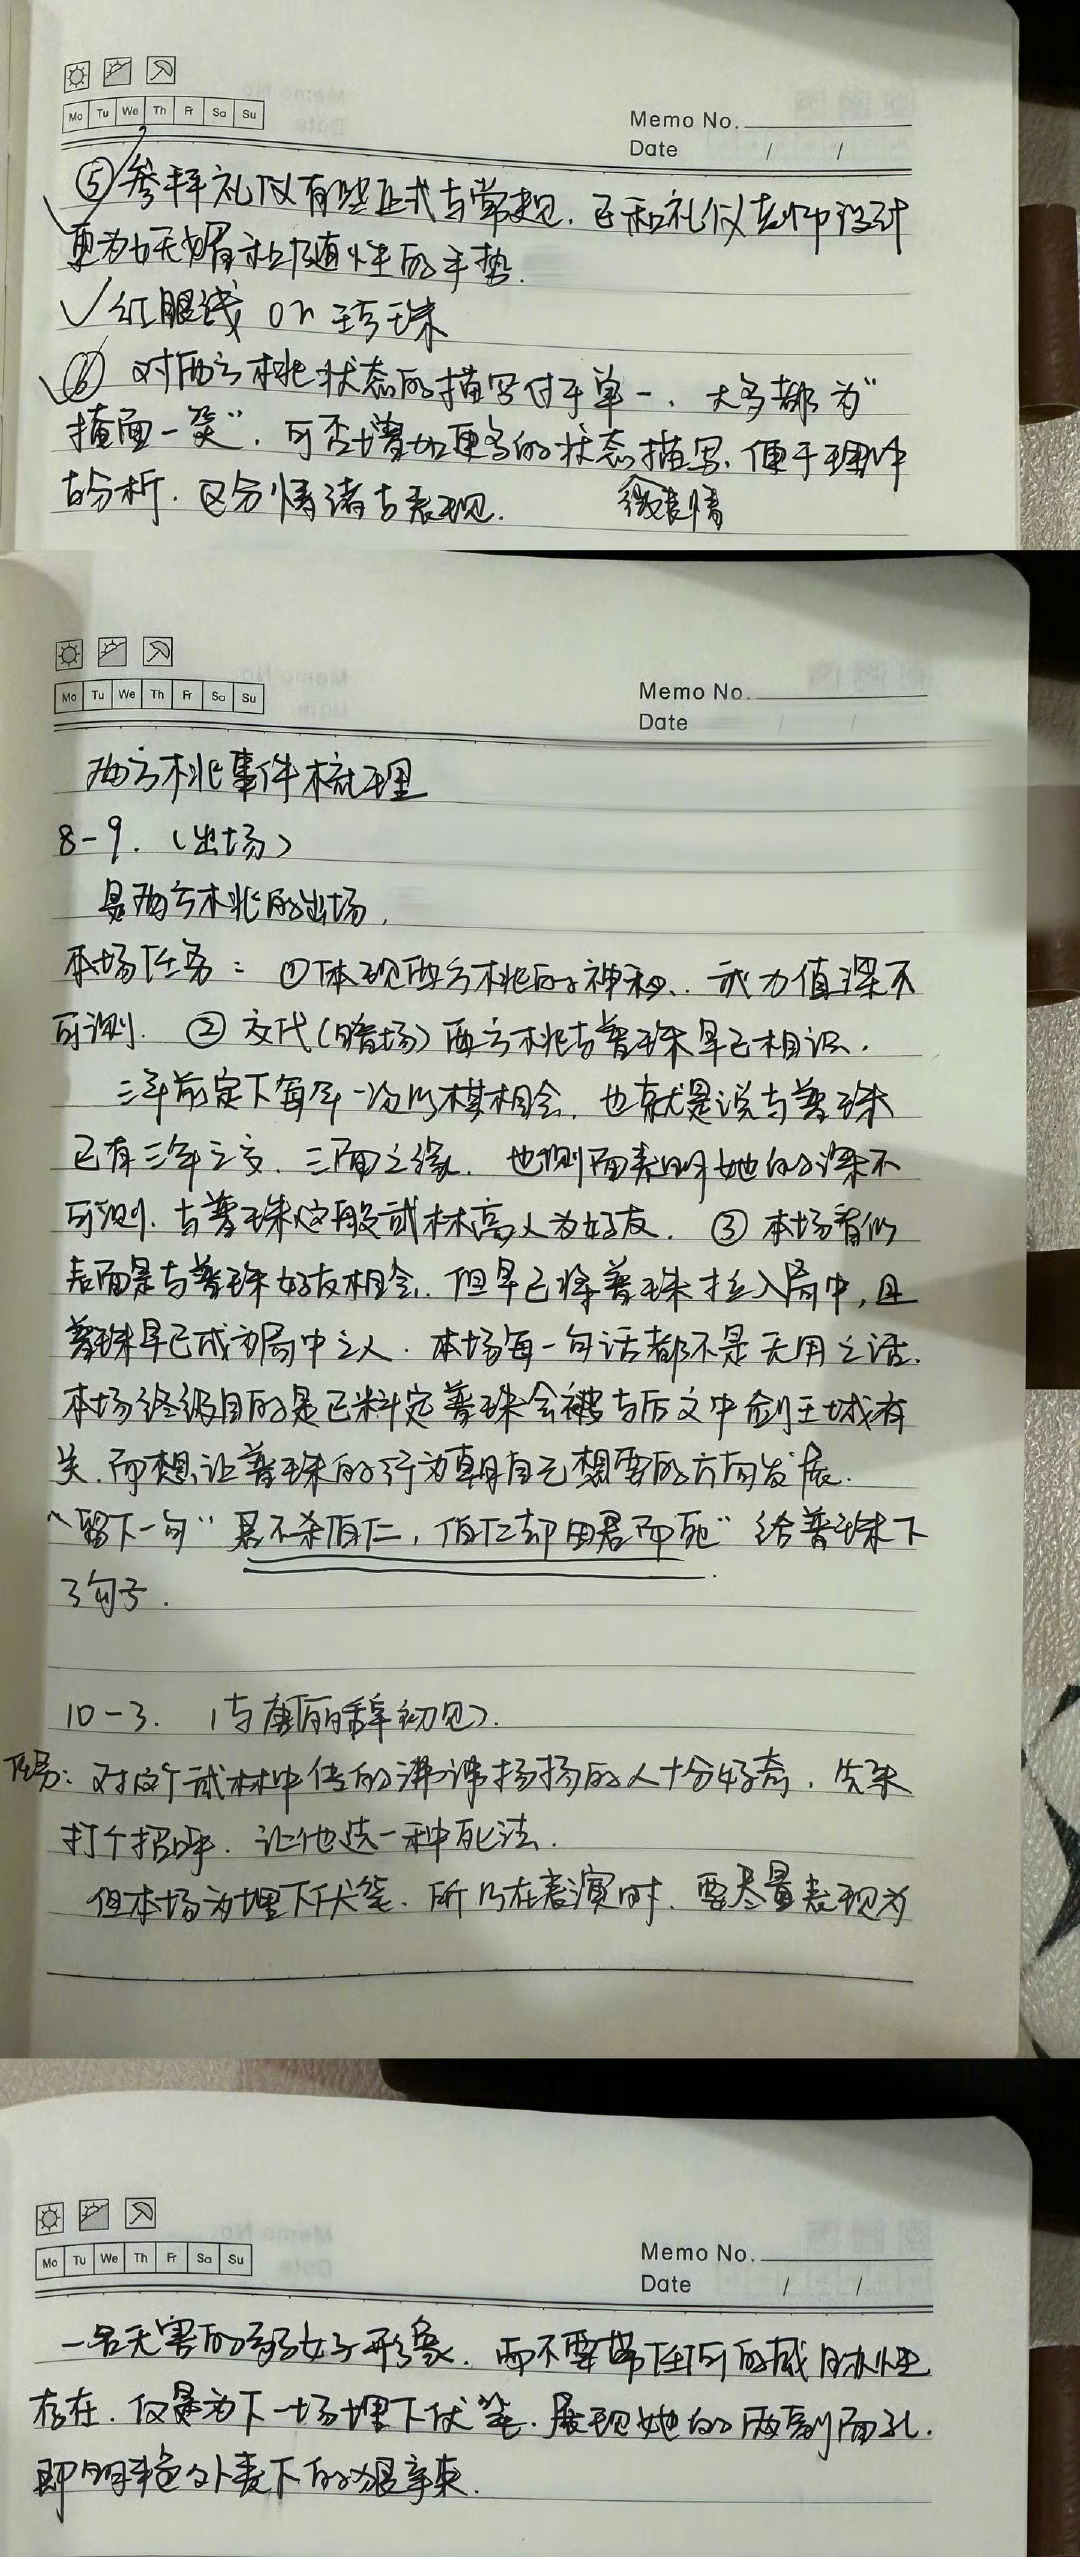 Mo Tu We Th Fr Sa Su
Memo No.
Date / /
⑤参拜礼仪有些正式与常规，已和礼仪老师设计
更为妩媚和随性的手势.
√红眼线 or 珍珠
⑥ 对西方桃状态的描写过于单一、大多都为“
掩面一笑”，可否增加更多的状态描写、便于理解
与分析．区分情绪与表现. 微表情
Mo Tu We Th Fr Sa Su
Memo No.
Date / /
西方桃事件梳理
8-9.（出场）
是西方桃的出场.
本场任务：①体现西方桃的神秘、武力值深不
可测. ②交代（暗场）西方桃与普珠早已相识.
三年前定下每年一次以棋相会，也就是说与普珠
已有三年之交、三面之缘．也侧面表明她的深不
可测．与普珠这般武林高人为好友. ③本场看似
表面是与普珠好友相会．但早已将普珠拉入局中，且
普珠早已成为局中之人．本场每一句话都不是无用之话.
本场终级目的是已料定普珠会被与后文中剑王城有
关．而想让普珠的行为朝自己想要的方向发展.
留下一句“君不杀伯仁，伯仁却因君而死”给普珠下
了句子.
10-3.（与唐俪辞初见）.
任务：对这个武林中传的沸沸扬扬的人十分好奇．先来
打个招呼．让他选一种死法.
但本场为埋下伏笔．所以在表演时．要尽量表现为
Mo Tu We Th Fr Sa Su
Memo No.
Date / /
一名无害的弱女子形象．而不要带任何的威胁性
存在．仅是为下一场埋下伏笔．展现她的两副面孔.
即明艳外表下的狠辛辣.